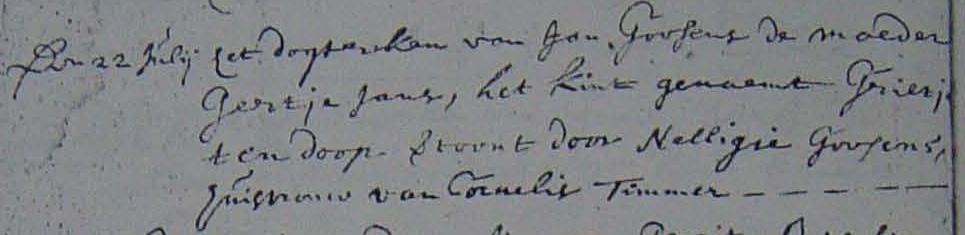 Den 22 Julij het dogterken van Jan Goosens de moeder
Geertje Jans, het kint genaemt Grietj
ten doop stont door Nelligie Goosens,
huisvrouw van Cornelis Timmer - - - - -